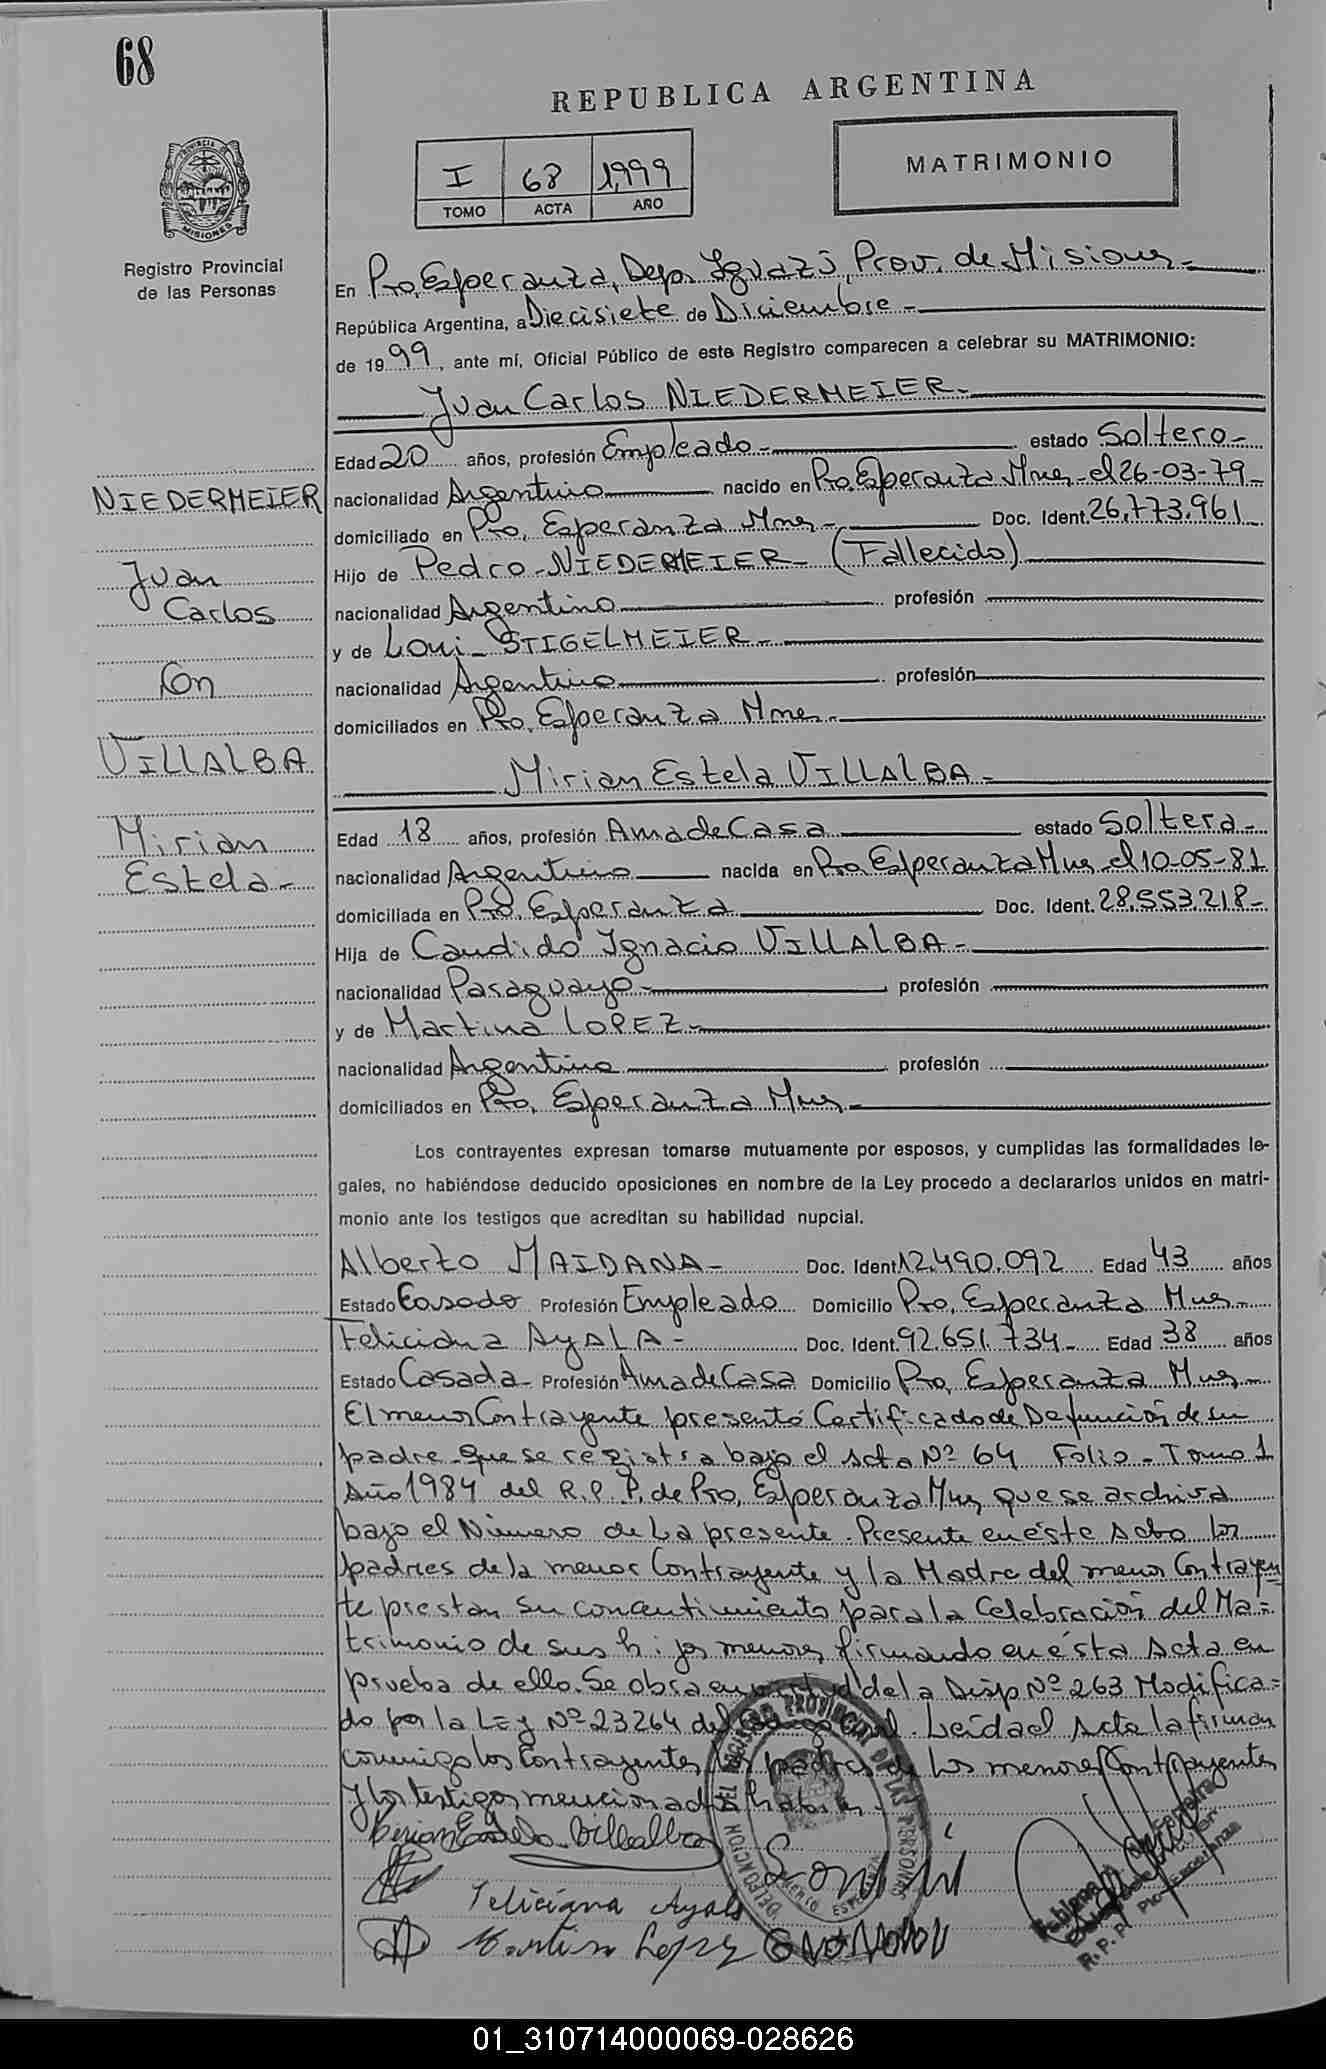 68
REPUBLICA ARGENTINA
MATRIMONIO
I 68 1,999
TOMO ACTA AÑO
PROVINCIA DE
MISIONES
Registro Provincial
de las Personas
En Pto. Esperanza, Depo. Iguazú, Prov. de Misiones-
República Argentina, a Diecisiete de Diciembre-
de 1999, ante mí, Oficial Público de este Registro comparecen a celebrar su MATRIMONIO:
Juan Carlos NIEDERMEIER-
Edad 20 años, profesión Empleado- estado Soltero-
nacionalidad Argentino nacido en Pto. Esperanza Mnes- el 26-03-79-
domiciliado en Pto. Esperanza Mnes- Doc. Ident. 26.773.961
Hijo de Pedro-NIEDERMEIER- (Fallecido)
nacionalidad Argentino profesión
y de Loni- STIGELMEIER-
nacionalidad Argentino profesión
domiciliados en Pto. Esperanza Mnes-
NIEDERMEIER
Juan
Carlos
Con
VILLALBA
Mirian
Estela-
Mirian Estela VILLALBA-
Edad 18 años, profesión Ama de Casa estado Soltera-
nacionalidad Argentino nacida en Pto. Esperanza Mnes el 10-05-81
domiciliada en Pto. Esperanza Doc. Ident. 28.553.218-
Hija de Candido Ignacio VILLALBA-
nacionalidad Paraguayo- profesión
y de Martina LOPEZ-
nacionalidad Argentina profesión
domiciliados en Pto. Esperanza Mnes-
Los contrayentes expresan tomarse mutuamente por esposos, y cumplidas las formalidades le-
gales, no habiéndose deducido oposiciones en nombre de la Ley procedo a declararlos unidos en matri-
monio ante los testigos que acreditan su habilidad nupcial.
Alberto MAIDANA- Doc. Ident. 12.490.092 Edad 43 años
Estado Casado Profesión Empleado Domicilio Pto. Esperanza Mnes-
Feliciana AyALA- Doc. Ident. 92.651.734- Edad 38 años
Estado Casada- Profesión Ama de Casa Domicilio Pto. Esperanza Mnes-
El menor Contrayente presentó Certificado de Defunción de su
padre que se registra bajo el Acta Nº 64 Folio- Tomo 1
Año 1984 del R.P.P. de Pto. Esperanza Mnes que se archiva
bajo el Número de la presente. Presente en éste Acto los
padres de la menor Contrayente y la Madre del menor Contrayen
te prestan su concentimiento para la Celebración del Ma=
trimonio de sus hijos menores firmando en ésta Acta en
prueba de ello. Se obra en virtud de la Disp Nº 263 Modifica=
do por la Ley Nº 23264 del Leída el Acta la firman
conmigo los Contrayentes, los padres de los menores Contrayentes
y los testigos mencionados
Villalba
Feliciana Ayala
Martina Lopez
DELEGACION DEL REGISTRO PROVINCIAL DE LAS PERSONAS
PUERTO ESPERANZA
R.P.P. Pto. Esperanza
01_310714000069-028626